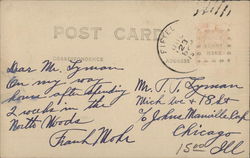 POST CARD
CORRESPONDENCE
ADDRESS
Dear Mr. Lyman
On my way
home after spending
2 weeks in the
North Woods
Frank Mohr
Mr. T. T. Lyman
Mich ave & 18 St
c/o Johns Manville Co
Chicago
Ill